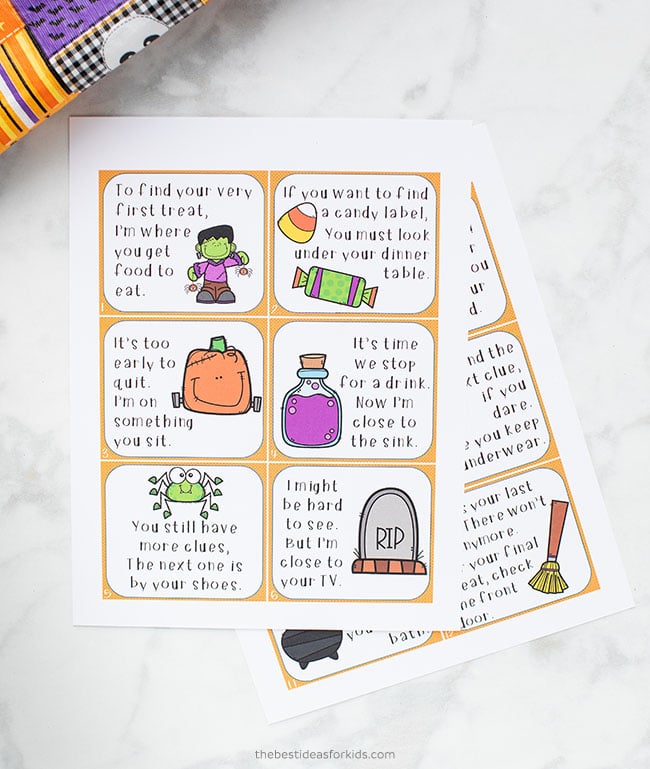 To find your very
first treat,
I'm where
you get
food to
eat.
1
If you want to find
a candy label,
You must look
under your dinner
table.
2
It's too
early to
quit.
I'm on
something
you sit.
3
It's time
we stop
for a drink.
Now I'm
close to
the sink.
4
You still have
more clues,
The next one is
by your shoes.
5
I might
be hard
to see.
But I'm
close to
your TV.
RIP
6
you
ur
d.
the
clue,
if you
dare.
you keep
underwear.
your last
There won't
your final
check
front
bath.
11
thebestideasforkids.com